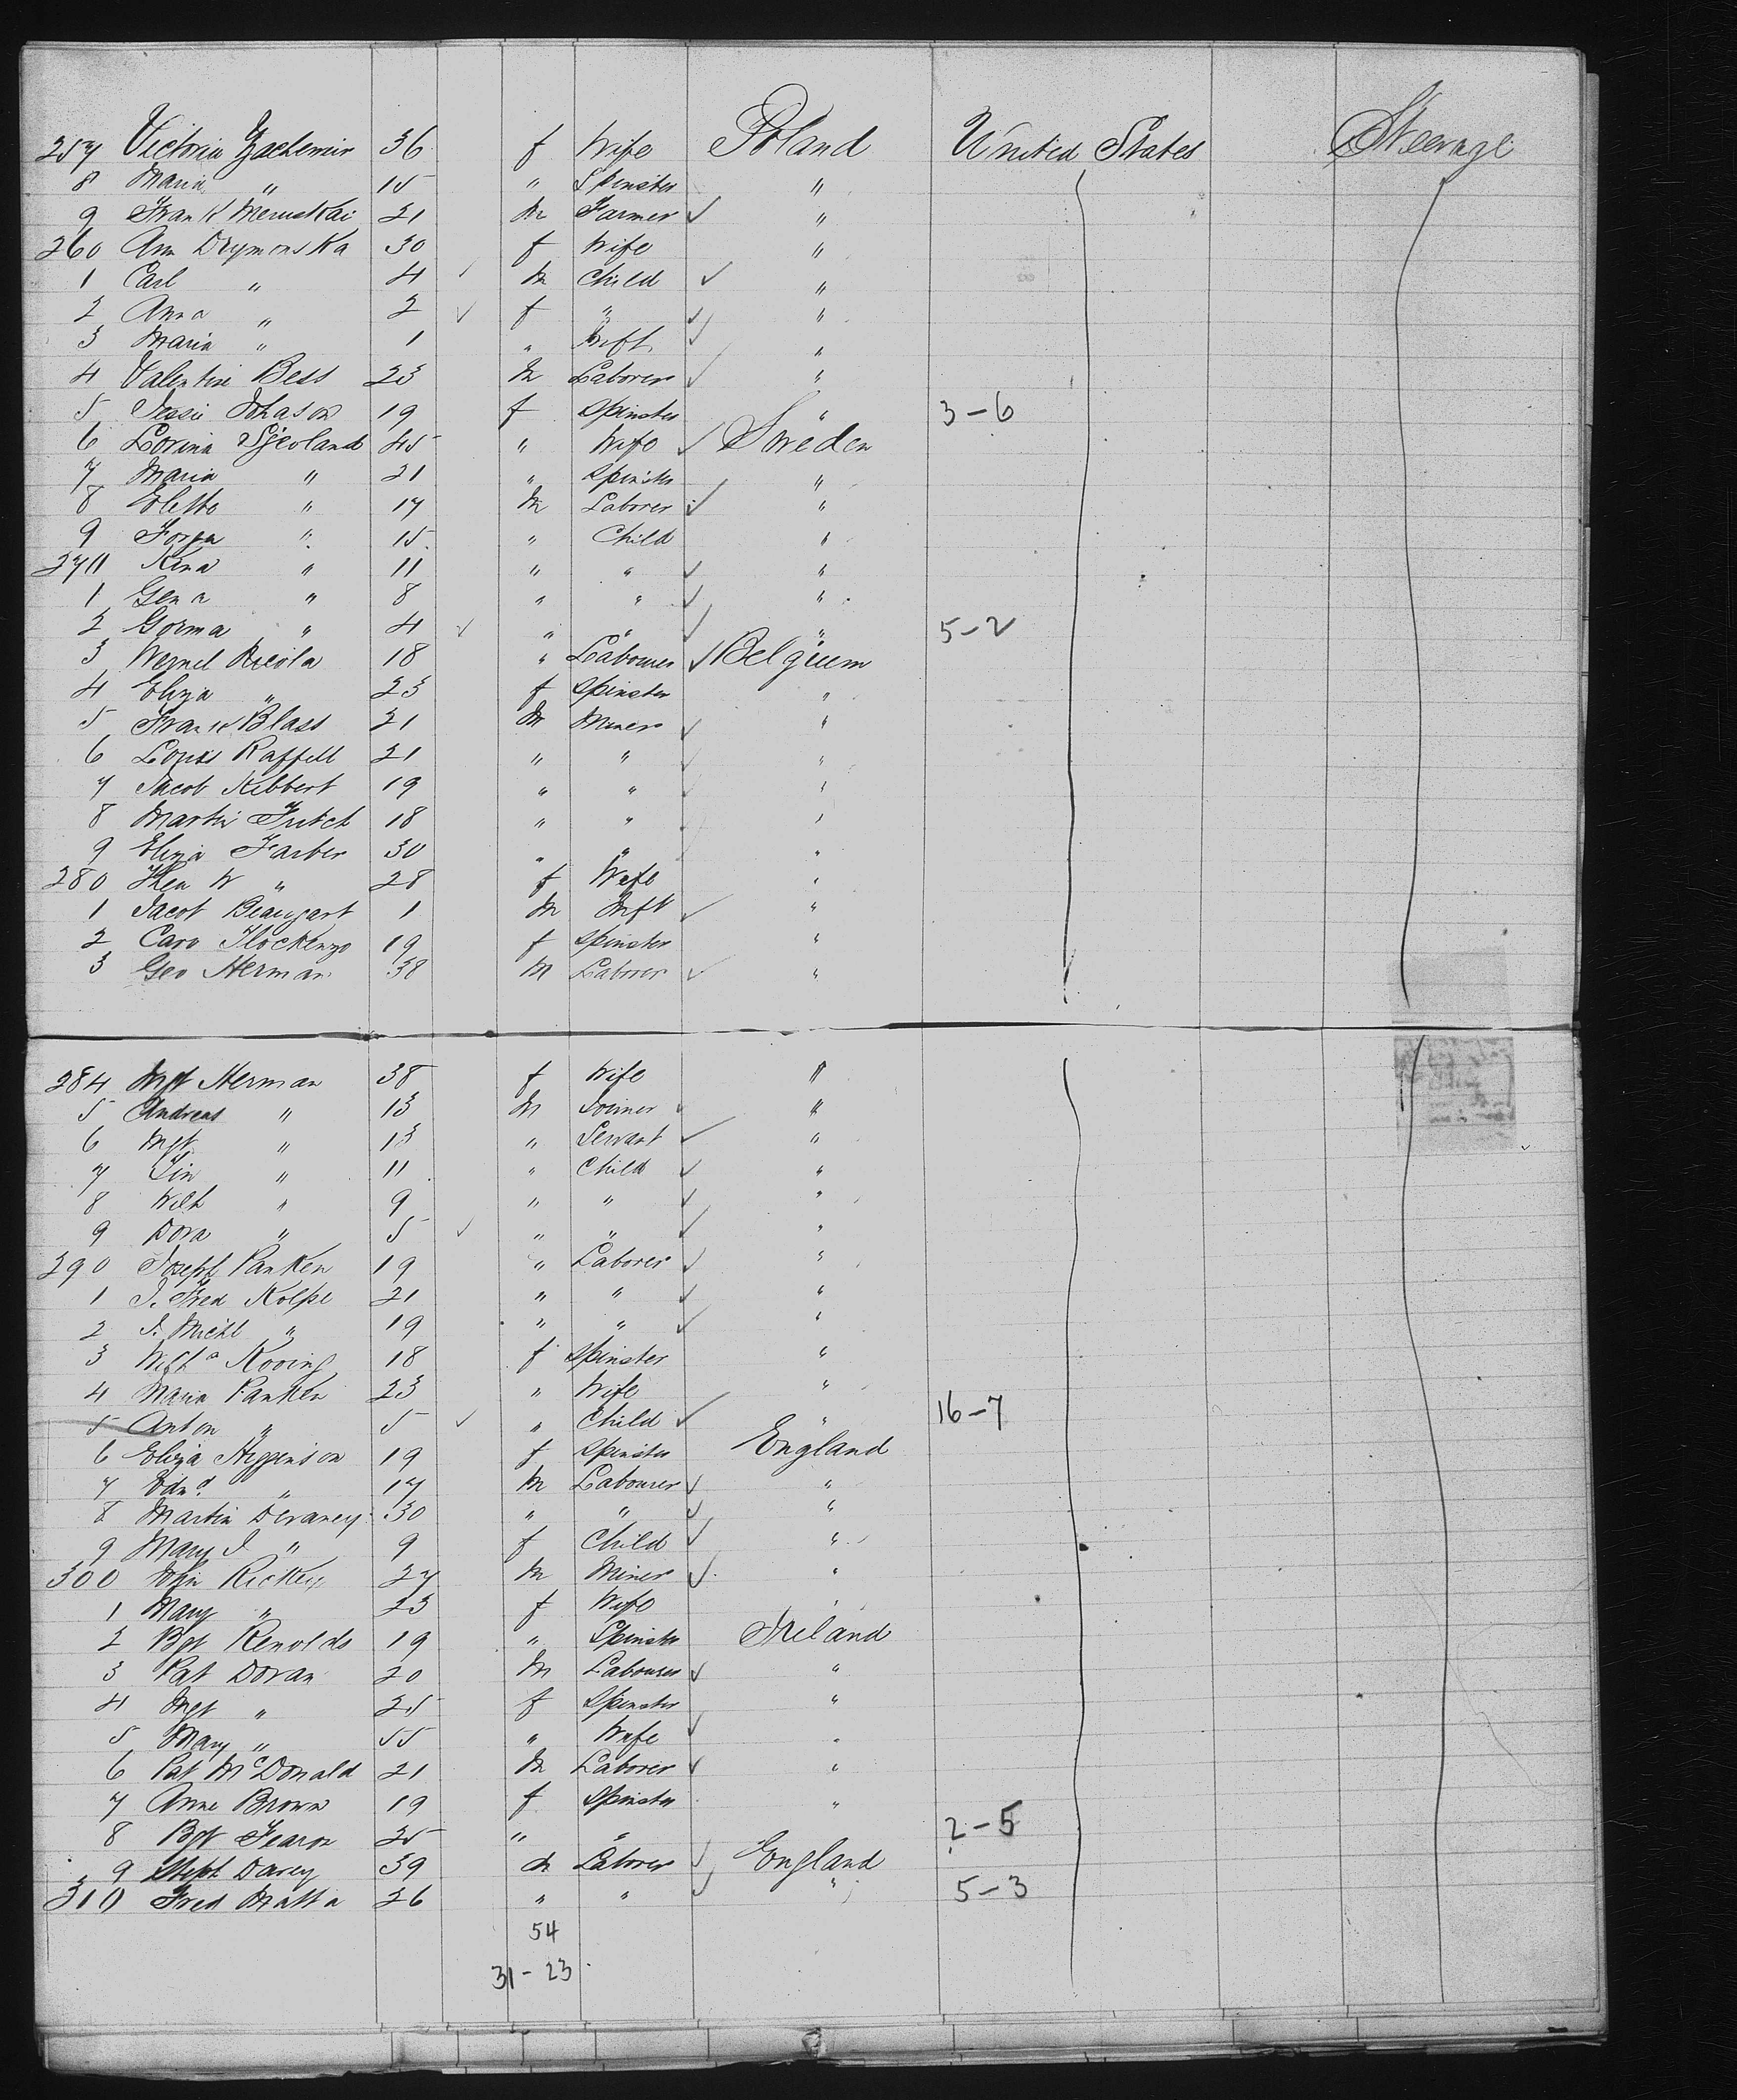 257 Victoria Zachemin 36 f Wife Poland United States Steerage
8 Maria " 15 " Spinster "
9 Frank Meruskai 21 m Farmer ✓ "
260 Ann Drymonska 30 f Wife "
1 Carl " 4 ✓ m Child ✓ "
2 Anna " 2 ✓ f " ✓ "
3 Maria " 1 " Inft ✓ "
4 Valentine Bess 23 m Laborer ✓ "
5 Jessie Johason 19 f Spinster " 3-6
6 Lovina Sjevland 45 " Wife ✓ Sweden
7 Maria " 21 " Spinster "
8 " 17 m Laborer ✓ "
9 " 15 " Child "
270 Kina " 11 " " ✓ "
1 Gena " 8 " " ✓ "
2 Gorma " 4 ✓ " " ✓ " 5-2
3 18 " Labourer ✓ Belgium
4 Eliza " 23 f Spinster "
5 Frank Blass 21 m Miner ✓ "
6 Louis Raffell 21 " " ✓ "
7 Jacob Kibbert 19 " " ✓ "
8 Martin Fritch 18 " " "
9 Eliza Farber 30 " " "
280 " 28 f Wife "
1 Jacob Beaugart 1 m Inft ✓ "
2 Caro Flockenzo 19 f Spinster "
3 Geo Herman 38 m Laborer ✓ "
284 Mgt Herman 38 f Wife "
5 Andreas " 13 m Joiner ✓ "
6 Mgt " 13 " Servant ✓ "
7 " 11 " Child ✓ "
8 Wilh " 9 " " ✓ "
9 Dora " 5 ✓ " " ✓ "
290 Joseph Panken 19 " Laborer ✓ "
1 J. Fred Kolpe 21 " " ✓ "
2 J. Michl " 19 " " ✓ "
3 Kooing 18 f Spinster "
4 Maria Panken 23 " Wife "
5 Anton " 5 ✓ " Child ✓ " 16-7
6 Eliza Higginson 19 f Spinster England
7 Edwd. " 17 m Labourer ✓ "
8 Martin Devaney 30 " " ✓ "
9 Mary J " 9 f Child ✓ "
300 John Rickey 27 m Miner ✓ "
1 Mary " 23 f Wife "
2 Bgt Renolds 19 " Spinster Ireland
3 Pat Doran 20 m Labourer ✓ "
4 Mgt " 25 f Spinster "
5 Mary " 55 " Wife ✓ "
6 Pat McDonald 21 m Laborer ✓ "
7 Anne Brown 19 f Spinster "
8 Bgt Fearon 25 " " 2-5
9 Steph Darey 39 m Laborer ✓ England
310 Fred Matta 26 " " ✓ " 5-3
54
31-23